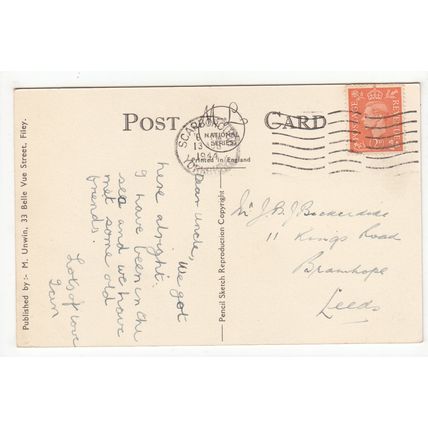 POST CARD
M
NATIONAL
SERIES
Printed in England
SCARBOROUGH
13
1944
YORKSHIRE
POSTAGE
REVENUE
Dear Uncle, We got
here alright.
I have been in the
sea and we have
met some old
friends.
Lots of love
Published by :- M. Unwin, 33 Belle Vue Street, Filey.
Pencil Sketch Reproduction Copyright
Mr J.B.J
11 Kings Road
Bramhope
Leeds